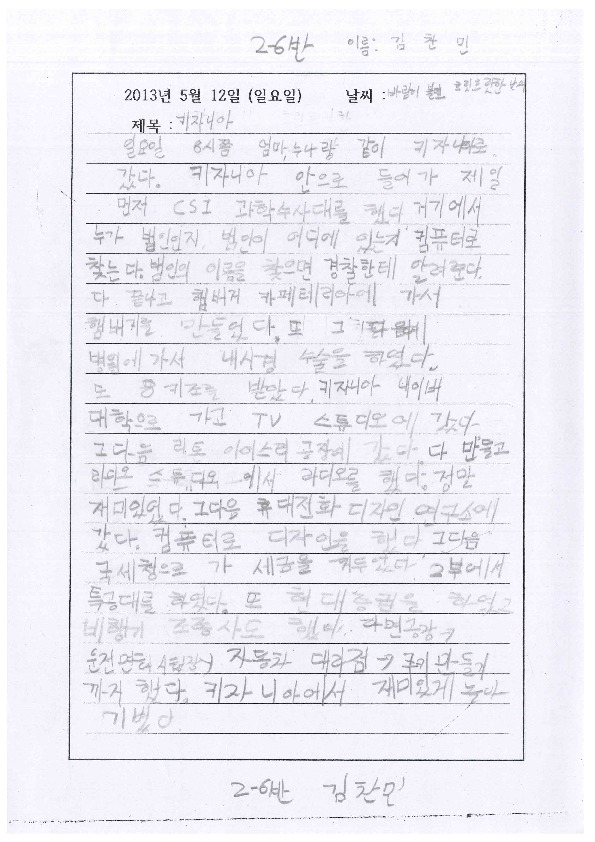 2-6반 이름: 김찬민
2013년 5월 12일 (일요일) 날씨 : 바람이 불면
제목 : 키자니아
일요일 8시쯤 엄마,누나랑 같이 키자니아로
갔다. 키자니아 안으로 들어가 제일
먼저 CSI 과학수사대를 했다 거기에서
누가 범인인지, 범인이 어디에 있는지 컴퓨터로
찾는다. 범인의 이름을 찾으면 경찰한테 알려준다.
다 끝나고 햄버거 카페테리아에 가서
햄버거를 만들었다. 또 그 다음에
병원에 가서 내시경 수술을 하였다.
또 8키조를 받았다. 키자니아 네이버
대학으로 가고 TV 스튜디오에 갔다
그다음 리트 아이스틱 공장에 갔다. 다 만들고
라디오 스튜디오 에서 라디오를 했다. 정말
재미있었다. 그다음 휴대전화 디자인 연구소에
갔다. 컴퓨터로 디자인을 했다 그다음
국세청으로 가 세금을 거두었다 2부에서
특공대를 하였다. 또 현대 을 하였고
비행기 조종사도 했며 라면공장→
운전면허시험장→ 자동차 대리점→쿠키 만들기
까지 했다. 키자니아에서 재미있게 누나
기뻤다
2-6반 김찬민